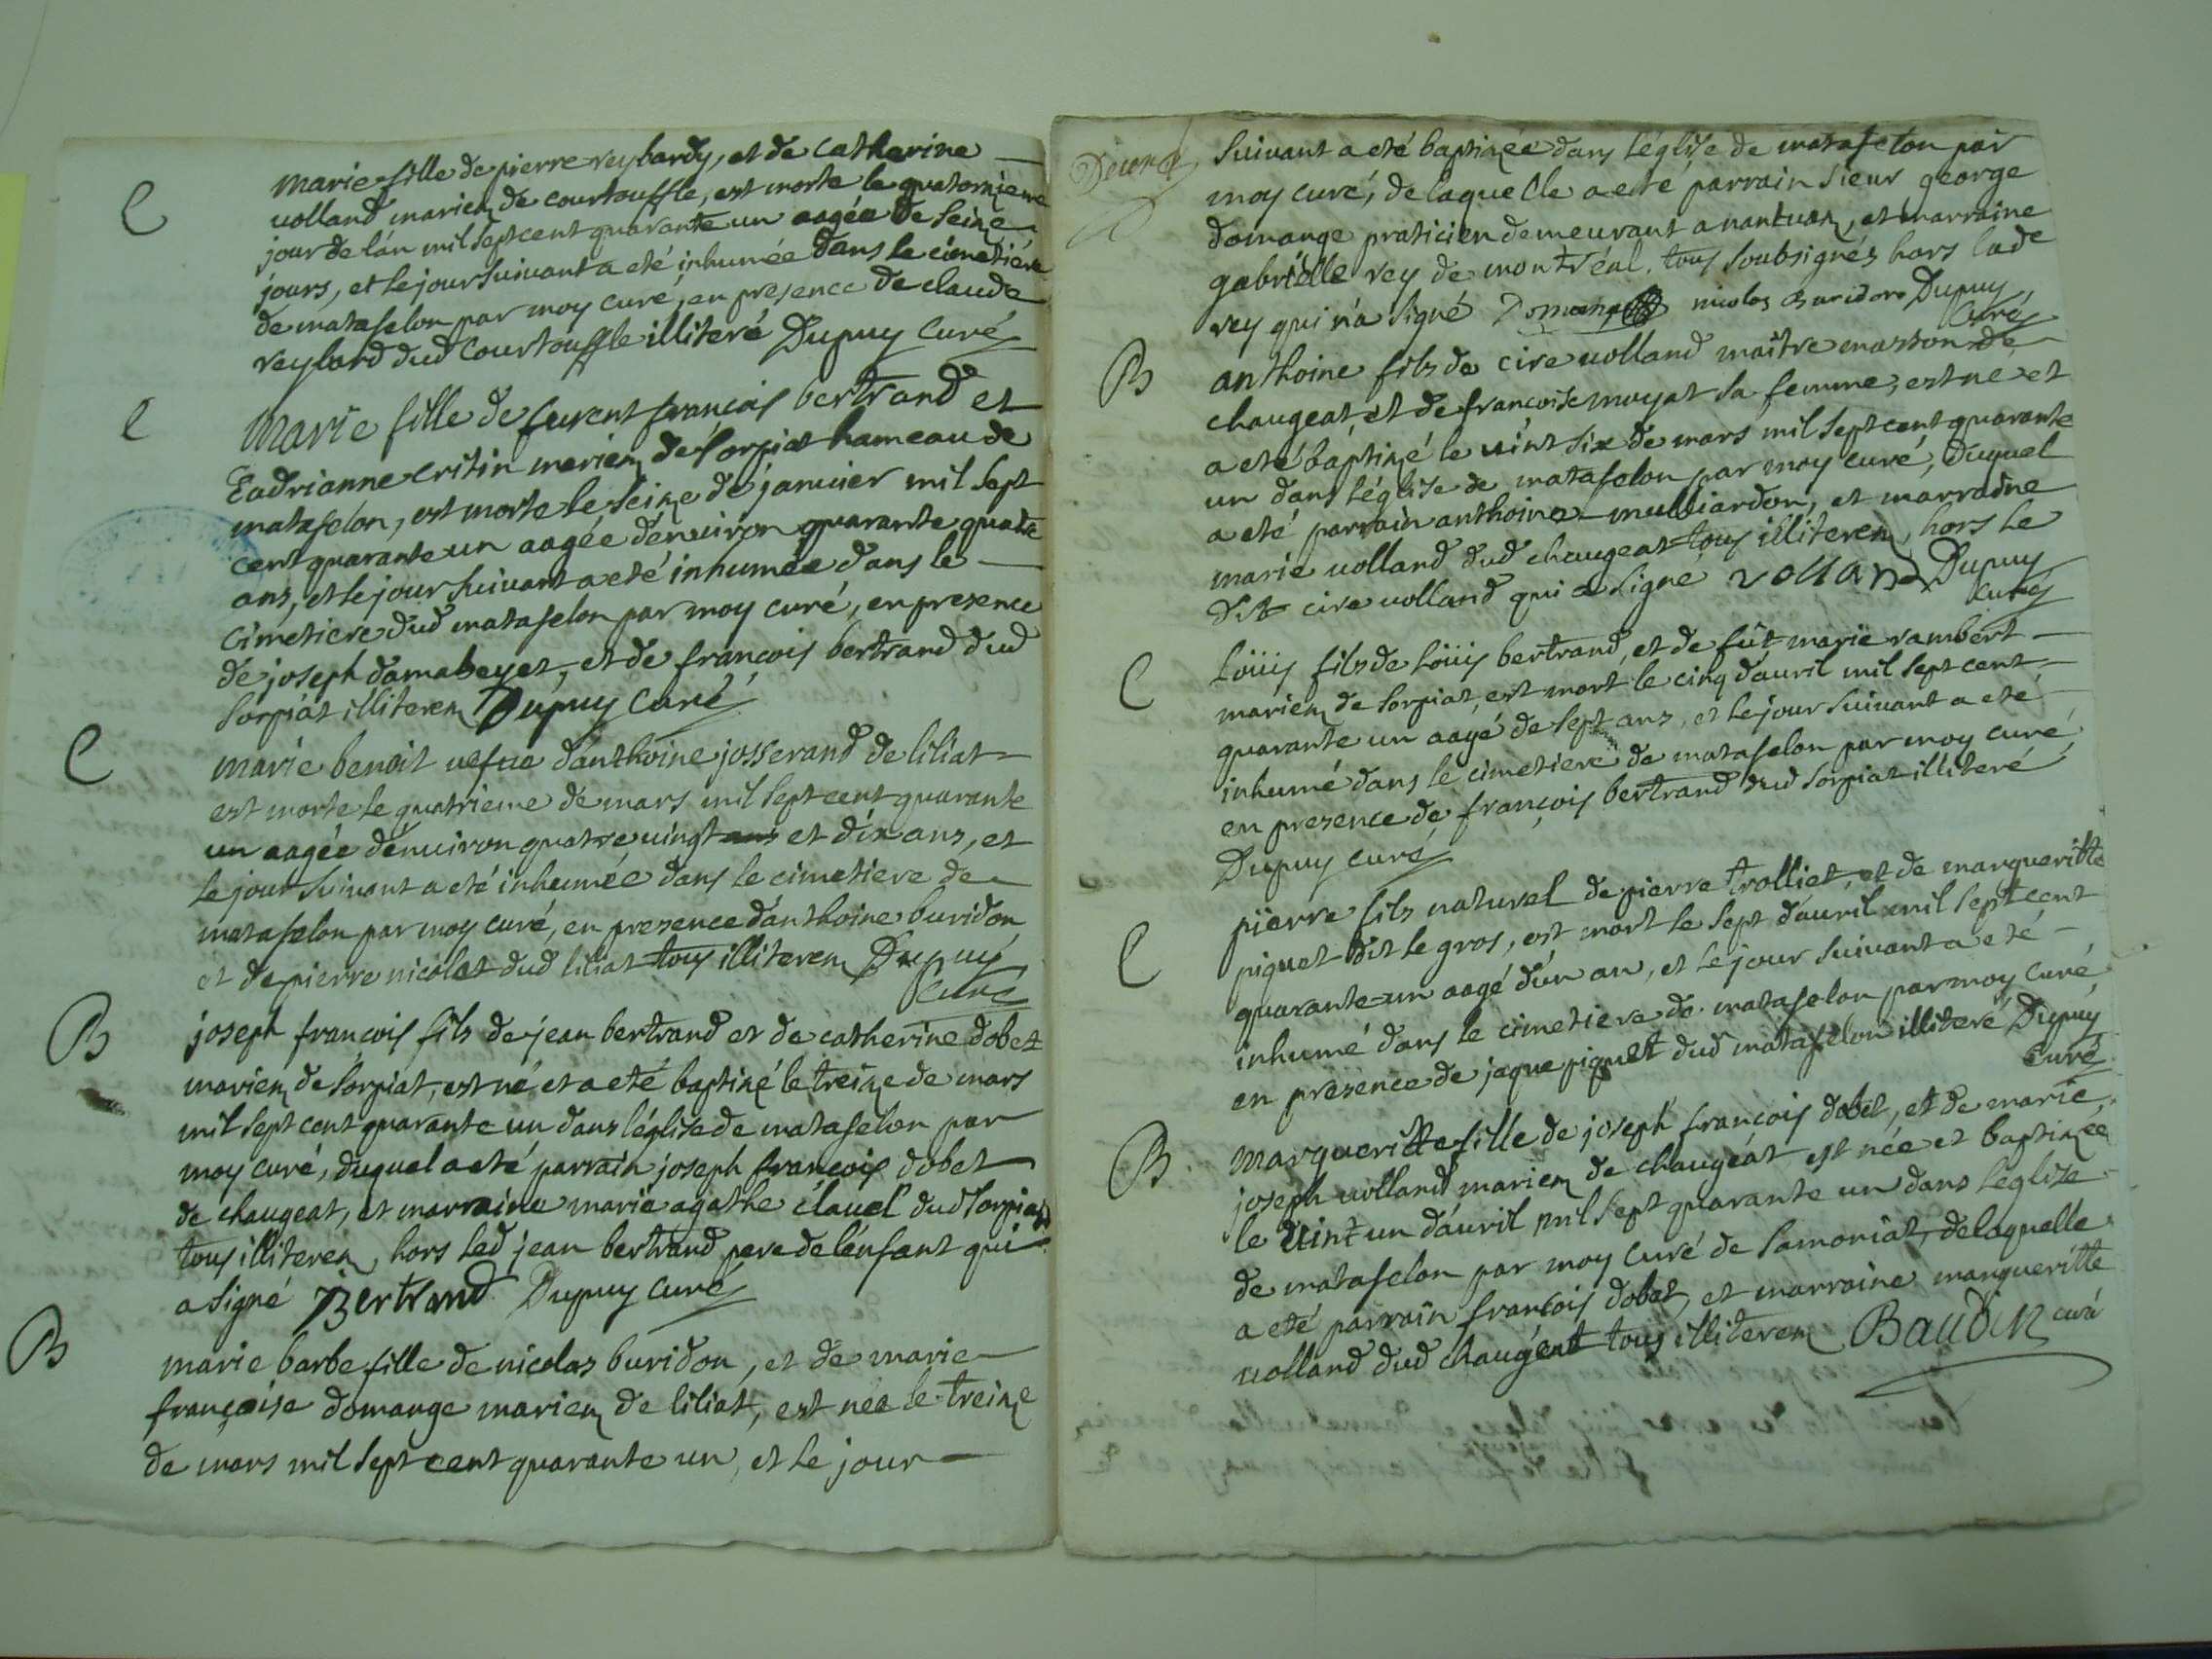 C
marie fille de pierre reybardy, et de catherine
uolland mariez de courtouffle, est morte le quatorzieme
jour de lán mil sept cent quarante un aagée de seize
jours, et le jour suivant a eté inhumée dans le cimetiére
de mataselon par moy curé, en presence de claude
reybard dud courtouffle illiteré Dupuy Curé
C
Marie fille de françois bertrand et
Eadrianne critin mariez de sorpiat hameau de
mataselon, est morte le seize de janvier mil sept
cent quarante un aagée dénuiron quarante quatre
ans, et le jour suivant a eté inhumée dans le
Cimetiere dud mataselon par moy curé, en presence
de joseph damabeyet, et de françois bertrand dud
Sorpiat illiterez Dupuy Curé
C
marie benoit uefue dánthoine josserand de liliat
est morte le quatrieme de mars mil sept cent quarante
un aagée dénuiron quatre uingt ans et dix ans, et
le jour suivant a eté inhumée dans le cimetiere de
mataselon par moy curé, en presence dánthoine buridon
et de pierre nicolet dud liliat tous illiterez Dupuy
Curé
B
joseph françois fils de jean bertrand et de catherine dobet
mariez de sorpiat, est né et a eté baptizé le treize de mars
mil sept cent quarante un dans léglise de mataselon par
moy curé, duquel a eté parrain joseph françois dobet
de chaugeat, et marraine marie agathe clauel dud sorpiat
tous illiterez, hors led jean bertrand pere de lénfant qui
a signé Bertrand Dupuy Curé
B
marie barbe fille de nicolas buridon, et de marie
françoise domange mariez de liliat, est née le treize
de mars mil sept cent quarante un, et le jour
suivant a eté baptizée dans léglise de mataselon par
moy curé, de laquelle a eté parrain sieur george
domange praticien demeurant a nantuaz, et marraine
gabriélle rey de montréal, tous soubsignés hors lade
rey qui ná signé Domange nicolas Buridon Dupuy
Curé
B
anthoine fils de cire uolland maitre masson de
chaugeat, et de françoise moyat sa femme, est ne et
a eté baptizé le uint six de mars mil sept cent quarante
un dans léglise de mataselon par moy curé, duquel
a eté parrain anthoine mulliardon, et marraine
marie uolland dud chaugeat tous illiterez, hors le
dit cire uolland qui a signé volland Dupuy
Curé
C
Loüis fils de Loüis bertrand, et de fût marie rambert
mariez de sorpiat, est mort le cinq dauril mil sept cent
quarante un aagé de sept ans, et le jour suivant a eté
inhumé dans le cimetiere de mataselon par moy curé
en presence de françois bertrand dud sorpiat illiteré
Dupuy curé
C
pierre fils naturel de pierre trolliet, et de margueritte
piquet dit le gros, est mort le sept dáuril mil sept cent
quarante un aagé dún an, et le jour suivant a eté
inhumé dans le cimetiere de mataselon par moy curé,
en presence de jaque piquet dud mataselon illiteré Dupuy
Curé
B
margueritte fille de joseph françois dobet, et de marie
joseph uolland mariez de chaugeát est née et baptizée
le uint un dáuril mil sept quarante un dans leglise
de mataselon par moy curé de samoniat, delaquelle
a eté parrain françois dobet, et marraine margueritte
uolland dud chaugéat tous illiterez Baudin curé